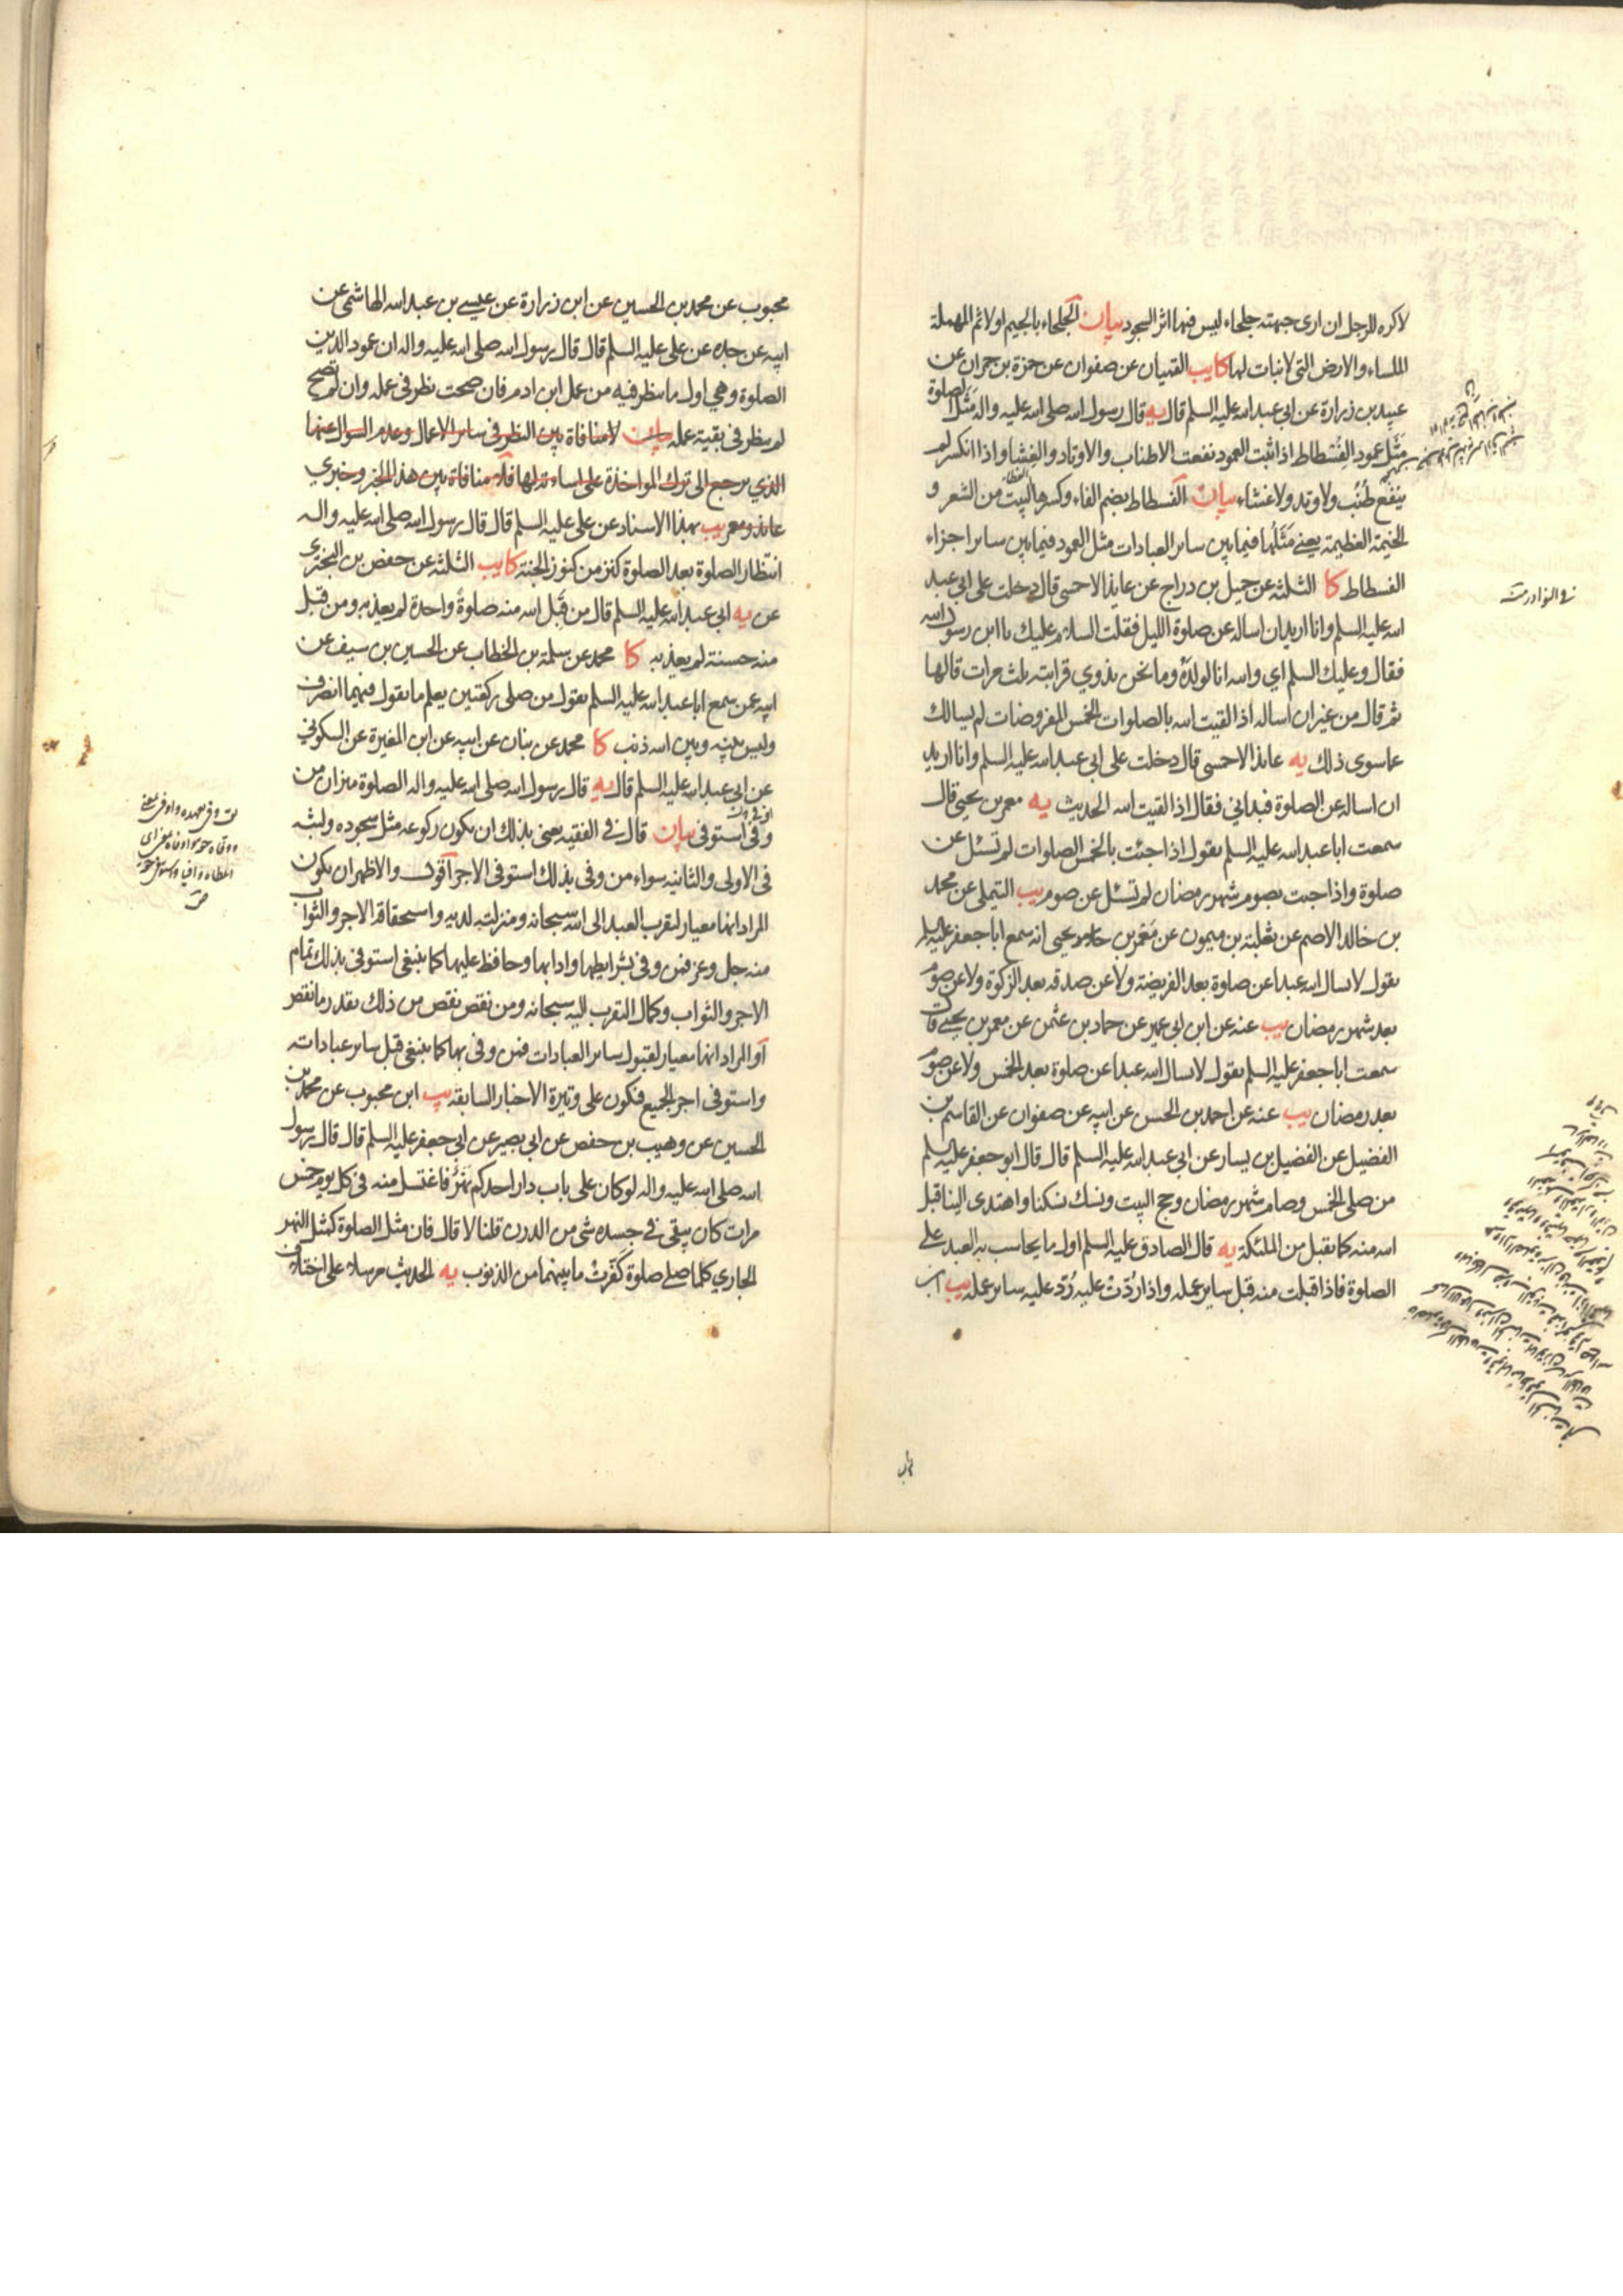 لاكره للرجل ان ارى جبهته جلحاء ليس فيها اثر السجود بيان الجلحاء بالجيم اولا ثم المهملة
الملساء والارض التي لا نبات لها كا يب القميان عن صفوان عن حمزة بن حمران عن
عبيد بن زرارة عن ابي عبد الله عليه السلم قال يه قال رسول الله صلى الله عليه واله مَثَل الصلوة
مَثَل عمود الفسطاط اذا ثبت العمود نفعت الاطناب والاوتاد والغشا واذا انكسر لم
ينفع طُنُب ولا وتد ولا غشاء بيان الفسطاط بضم الفاء وكسرها البيت من الشعر و
الخيمة العظيمة يعني مَثَلُها فيما بين ساير العبادات مثل العمود فيما بين ساير اجزاء
الفسطاط كا الثلثه عن جميل بن دراج عن عايذ الاحمسي قال دخلت على ابي عبد
الله عليه السلم وانا اريد ان اساله عن صلوة الليل فقلت السلام عليك يا ابن رسول الله
فقال وعليك السلم اي والله انا لولده وما نحن بذوي قرابته ثلث مرات قالها
ثم قال من غير ان اساله اذا لقيت الله بالصلوات الخمس المفروضات لم يسالك
عما سوى ذلك يه عايذ الاحمسي قال دخلت على ابي عبد الله عليه السلم وانا اريد
ان اساله عن الصلوة فبداني فقال اذا لقيت الله الحديث يه معمر بن يحيى قال
سمعت ابا عبد الله عليه السلم يقول اذا جئت بالخمس الصلوات لم تسئل عن
صلوة واذا جئت بصوم شهر رمضان لم تسئل عن صوم يب التيملي عن محمد
بن خالد الاصم عن ثعلبة بن ميمون عن مَعْمَر بن يحيى انه سمع ابا جعفر عليه السلم
يقول لا يسال الله عبدا عن صلوة بعد الفريضة ولا عن صدقه بعد الزكوة ولا عن صوم
بعد شهر رمضان يب عنه عن ابن ابي عمير عن حماد بن عثمن عن معمر بن يحيى قال
سمعت ابا جعفر عليه السلم يقول لا يسال الله عبدا عن صلوة بعد الخمس ولا عن صوم
بعد رمضان يب عنه عن احمد بن الحسن عن ابيه عن صفوان عن القاسم بن
الفضيل عن الفضيل بن يسار عن ابي عبد الله عليه السلم قال قال ابو جعفر عليه السلم
من صلى الخمس وصام شهر رمضان وحج البيت ونسك نسكنا واهتدى الينا قبل
الله منه كما يقبل من الملئكة يه قال الصادق عليه السلم اول ما يحاسب به العبد على
الصلوة فاذا قبلت منه قبل ساير عمله واذا رُدّت عليه رُدّ عليه ساير عمله يب ابن
محبوب عن محمد بن الحسين عن ابن زرارة عن عيسى بن عبد الله الهاشمي عن
ابيه عن جده عن علي عليه السلم قال قال رسول الله صلى الله عليه واله ان عمود الدين
الصلوة وهي اول ما ينظر فيه من عمل ابن ادم فان صحت نظر في عمله وان لم تصح
لم ينظر في بقية عمله بيان لا منافاة بين النظر في ساير الاعمال وعدم السوال عنها
الذي يرجع الى ترك المواخذة على اساءته لها فلا منافاة بين هذا الخبر وخبري
عايذ ومعمر يب بهذا الاسناد عن علي عليه السلم قال قال رسول الله صلى الله عليه واله
انتظار الصلوة بعد الصلوة كنز من كنوز الجنة كا يب الثلثه عن حفص بن البختري
عن يه ابي عبد الله عليه السلم قال من قَبِل الله منه صلوةً واحدة لم يعذبه ومن قبل
منه حسنة لم يعذبه كا محمد عن سلمة بن الخطاب عن الحسين بن سيف عن
ابيه عمن سمع ابا عبد الله عليه السلم يقول من صلى ركعتين يعلم ما يقول فيهما انصرف
وليس بينه وبين الله ذنب كا محمد عن بنان عن ابيه عن ابن المغيرة عن السكوني
عن ابي عبد الله عليه السلم قال يه قال رسول الله صلى الله عليه واله الصلوة ميزان من
وفى استوفى بيان قال في الفقيه يعني بذلك ان يكون ركوعه مثل سجوده ولبثه
في الاولى والثانيه سواء من وفى بذلك استوفى الاجر اقول والاظهر ان يكون
المراد انها معيار لتقرب العبد الى الله سبحانه ومنزلته لديه واستحقاقه الاجر والثواب
منه جل وعز فمن وفى بشرايطها وادابها وحافظ عليها كما ينبغي استوفى بذلك تمام
الاجر والثواب وكمال التقرب اليه سبحانه ومن نقص نقص من ذلك بقدر ما نقص
او المراد انها معيار لقبول ساير العبادات فمن وفى بها كما ينبغي قبل ساير عباداته
واستوفى اجر الجميع فيكون على وتيرة الاخبار السابقه يب ابن محبوب عن محمد بن
الحسين عن وهيب بن حفص عن ابي بصير عن ابي جعفر عليه السلم قال قال رسول
الله صلى الله عليه واله لو كان على باب دار احدكم نَهَرٌ فاغتسل منه في كل يوم خمس
مرات كان يبقى في جسده شي من الدرن قلنا لا قال فان مثل الصلوة كمثل النهر
الجاري كلما صلى صلوة كَفّرتْ ما بينهما من الذنوب يه الحديث مرسلا على اختلاف